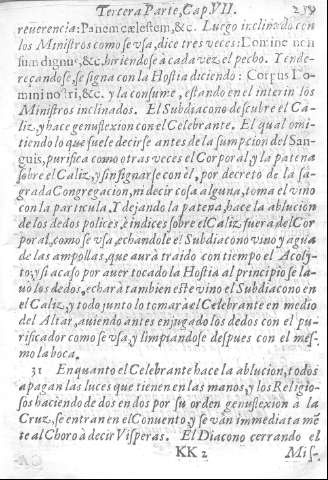 Tercera Parte, Cap. VII.
reuerencia: Panem cælestem, &c. Luego inclinado con
los Ministros como se vsa, dice tres veces: Domine non
sum dignus, &c. hiriendose à cada vez el pecho. Y ende-
reçandose, se signa con la Hostia diciendo: Corpus Do-
mini nostri, &c. y la consume, estando en el interin los
Ministros inclinados. El Subdiacono descubre el Ca-
liz, y hace genuflexion con el Celebrante. El qual omi-
tiendo lo que suele decirse antes de la sumpcion del San-
guis, purifica como otras veces el Corporal, y la patena
sobre el Caliz, y sin signarse con èl, por decreto de la sa-
grada Congregacion, ni decir cosa alguna, toma el vino
con la particula. Y dejando la patena, hace la ablucion
de los dedos polices, è indices sobre el Caliz, fuera del Cor
poral, como se vsa, echandole el Subdiacono vino y agua
de las ampollas, que aurà traido con tiempo el Acoly-
to, y si acaso por auer tocado la Hostia al principio se la-
uò los dedos, echarà tambien este vino el Subdiacono en
el Caliz, y todo junto lo tomarà el Celebrante en medio
del Altar, auiendo antes enjugado los dedos con el pu-
rificador como se vsa, y limpiandose despues con el mes-
mo la boca.
31 Enquanto el Celebrante hace la ablucion, todos
apagan las luces que tienen en las manos, y los Religio-
sos haciendo de dos en dos por su orden genuflexion à la
Cruz, se entran en el Conuento, y se vàn immediatamẽ
te al Choro à decir Visperas. El Diacono cerrando el
KK 2 Mis-